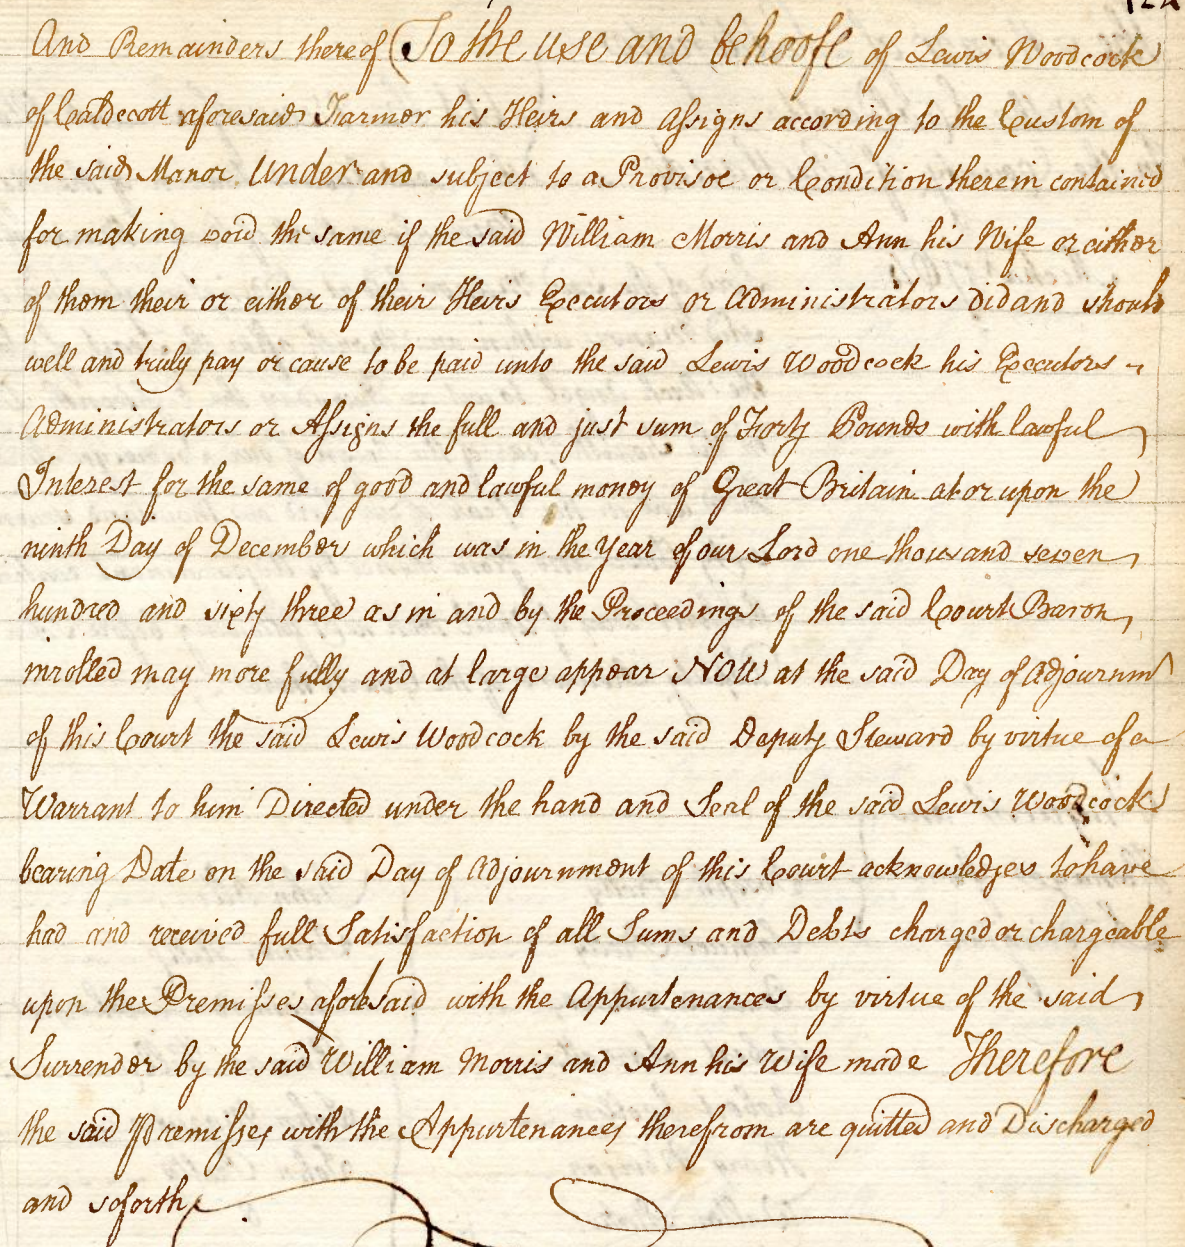 And Remainders thereof (To the use and behoofe of Lewis Woodcock
of Caldecott aforesaid Farmer his Heirs and Assigns according to the Custom of
the said Manor Under and subject to a Provisoe or Condition therein contained
for making void the same if the said William Morris and Ann his Wife or either
of them their or either of their Heirs Executors or Administrators did and should
well and truly pay or cause to be paid unto the said Lewis Woodcock his Executors
Administrators or Assigns the full and just sum of Forty Pounds with lawful
Interest for the same of good and lawful money of Great Britain at or upon the
ninth Day of December which was in the Year of our Lord one thousand seven
hundred and sixty three as in and by the Proceedings of the said Court Baron
inrolled may more fully and at large appear NOW at the said Day of Adjournmt
of this Court the said Lewis Woodcock by the said Deputy Steward by virtue of a
Warrant to him Directed under the hand and Seal of the said Lewis Woodcock
bearing Date on the said Day of Adjournment of this Court acknowledges to have
had and received full Satisfaction of all Sums and Debts charged or chargeable
upon the Premisses aforesaid with the Appurtenances by virtue of the said
Surrender by the said William Morris and Ann his Wife made Therefore
the said Premisses with the Appurtenances therefrom are quitted and Discharged
and soforth